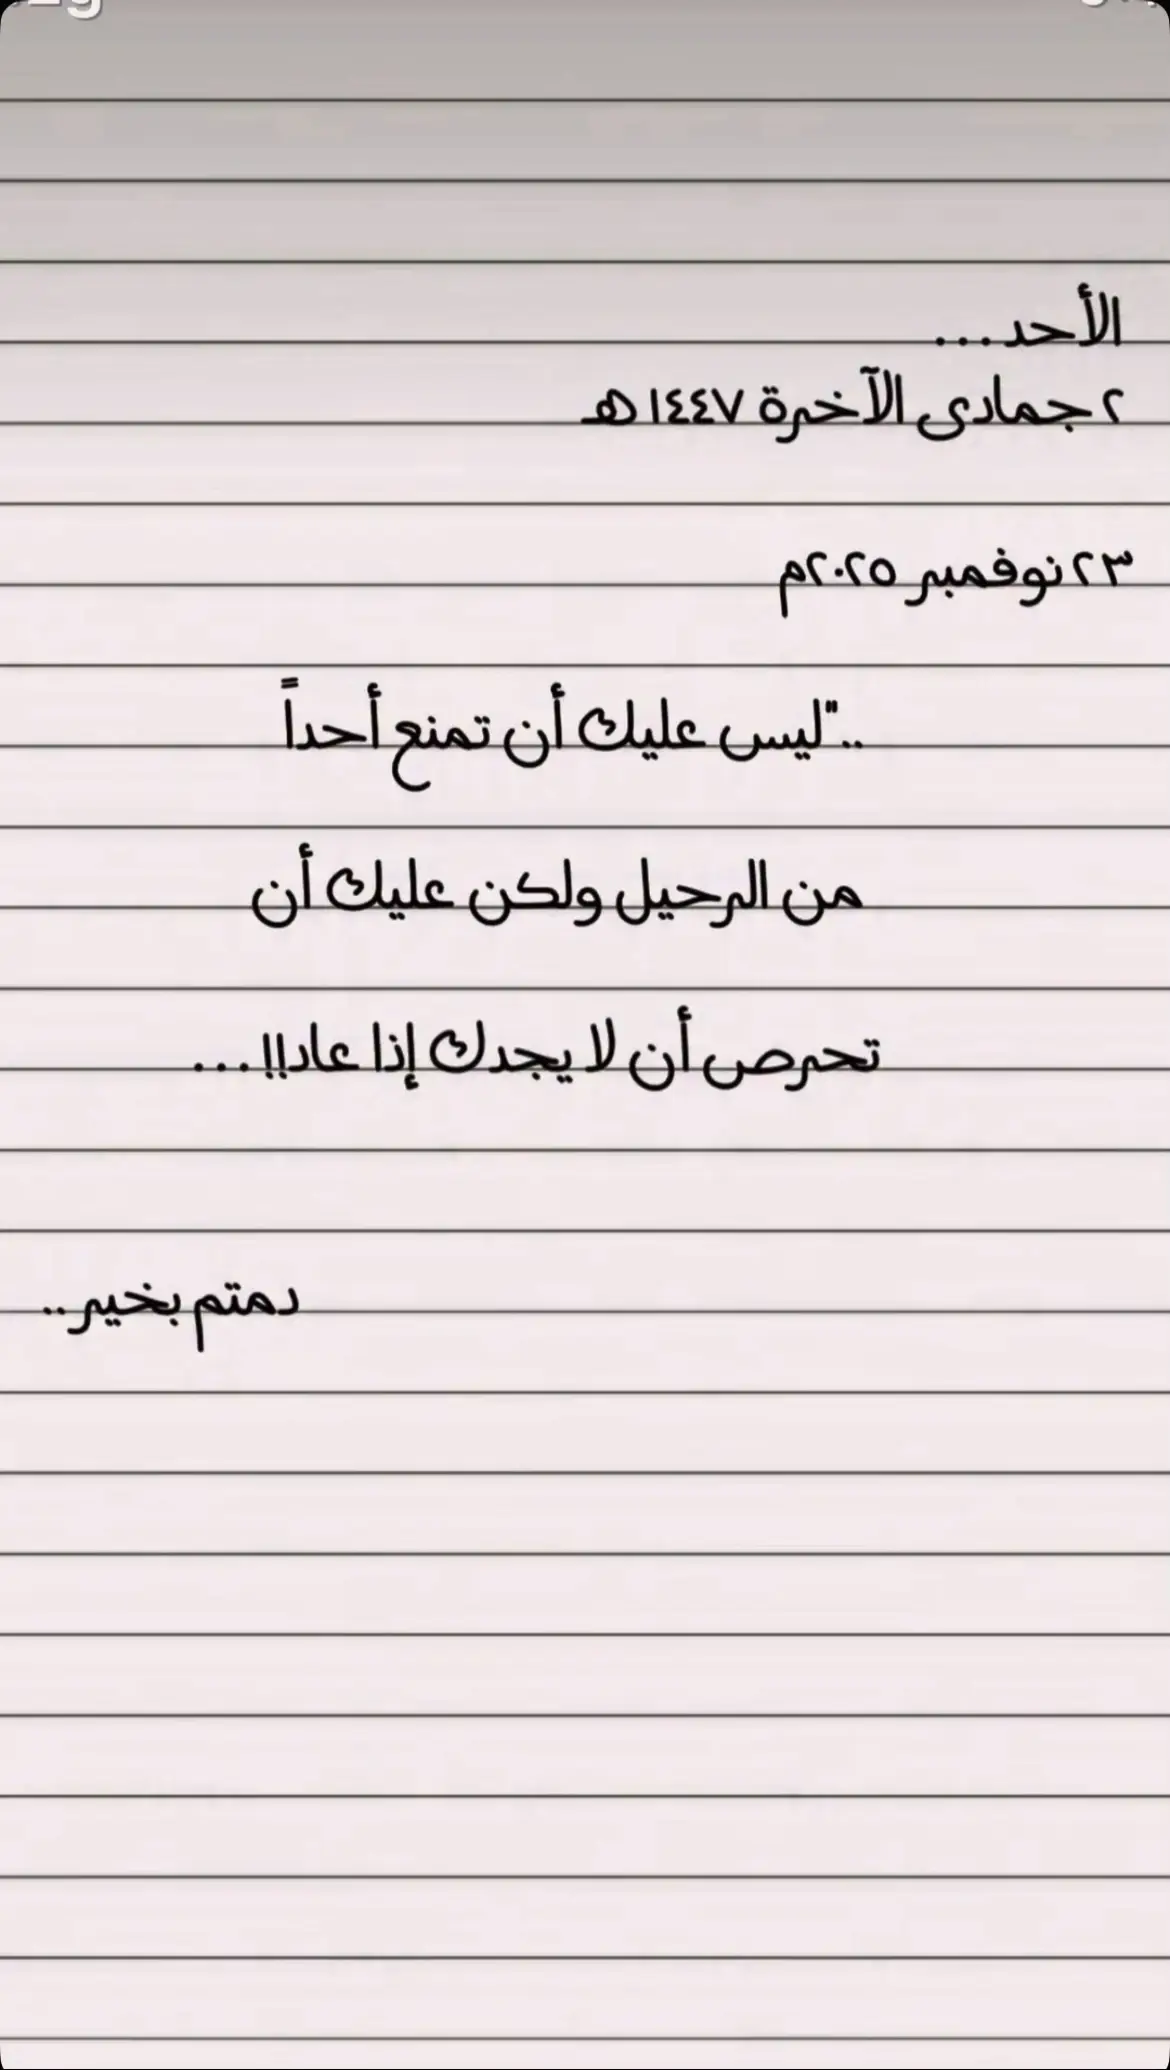 الأحد...
٢ جمادى الآخرة ١٤٤٧ هـ
٢٣ نوفمبر ٢٠٢٥م
.."ليس عليك أن تمنع أحداً
من الرحيل ولكن عليك أن
تحرص أن لا يجدك إذا عاد!!...
دمتم بخير..